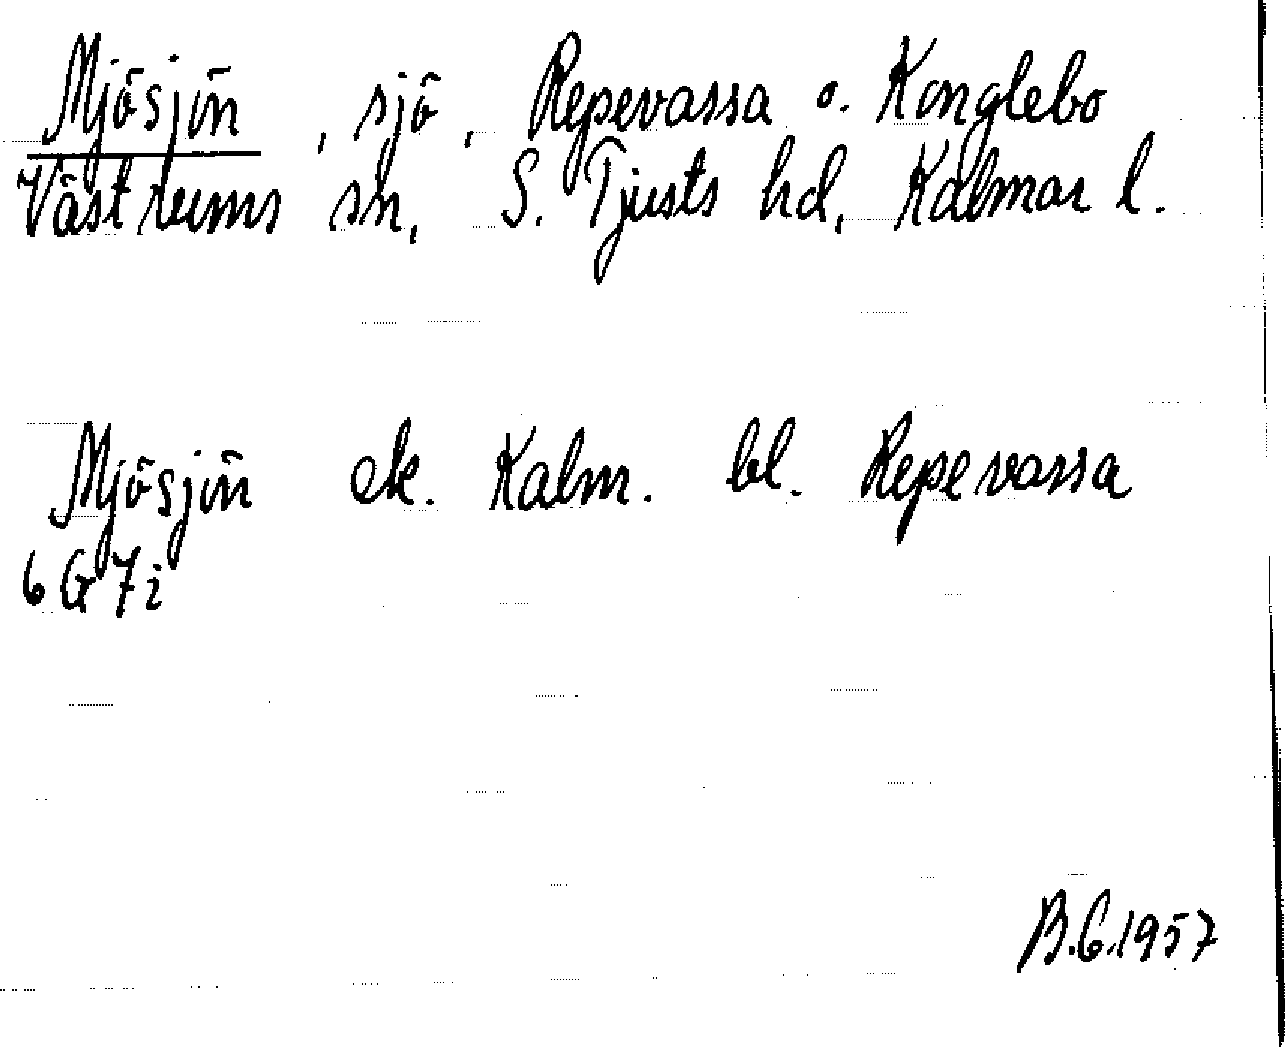 Mjösjön, sjö, Repevassa o. Konglebo
Västrums sn, S. Tjusts hd, Kalmar l.
Mjösjön ek. Kalm. bl. Repevassa
6 G 7 i
B.G.1957